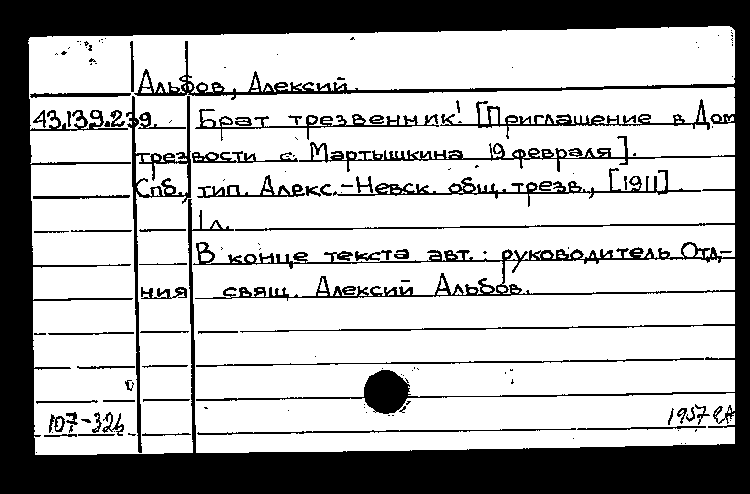 Альбов, Алексий.
43.139.239. Брат трезвенник! [Приглашение в Дом
трезвости с. Мартышкина 19 февраля].
Спб., тип. Алекс.-Невск. общ. трезв., [1911].
1 л.
В конце текста авт.: руководитель Отд-
ния свящ. Алексий Альбов.
107-326
1957